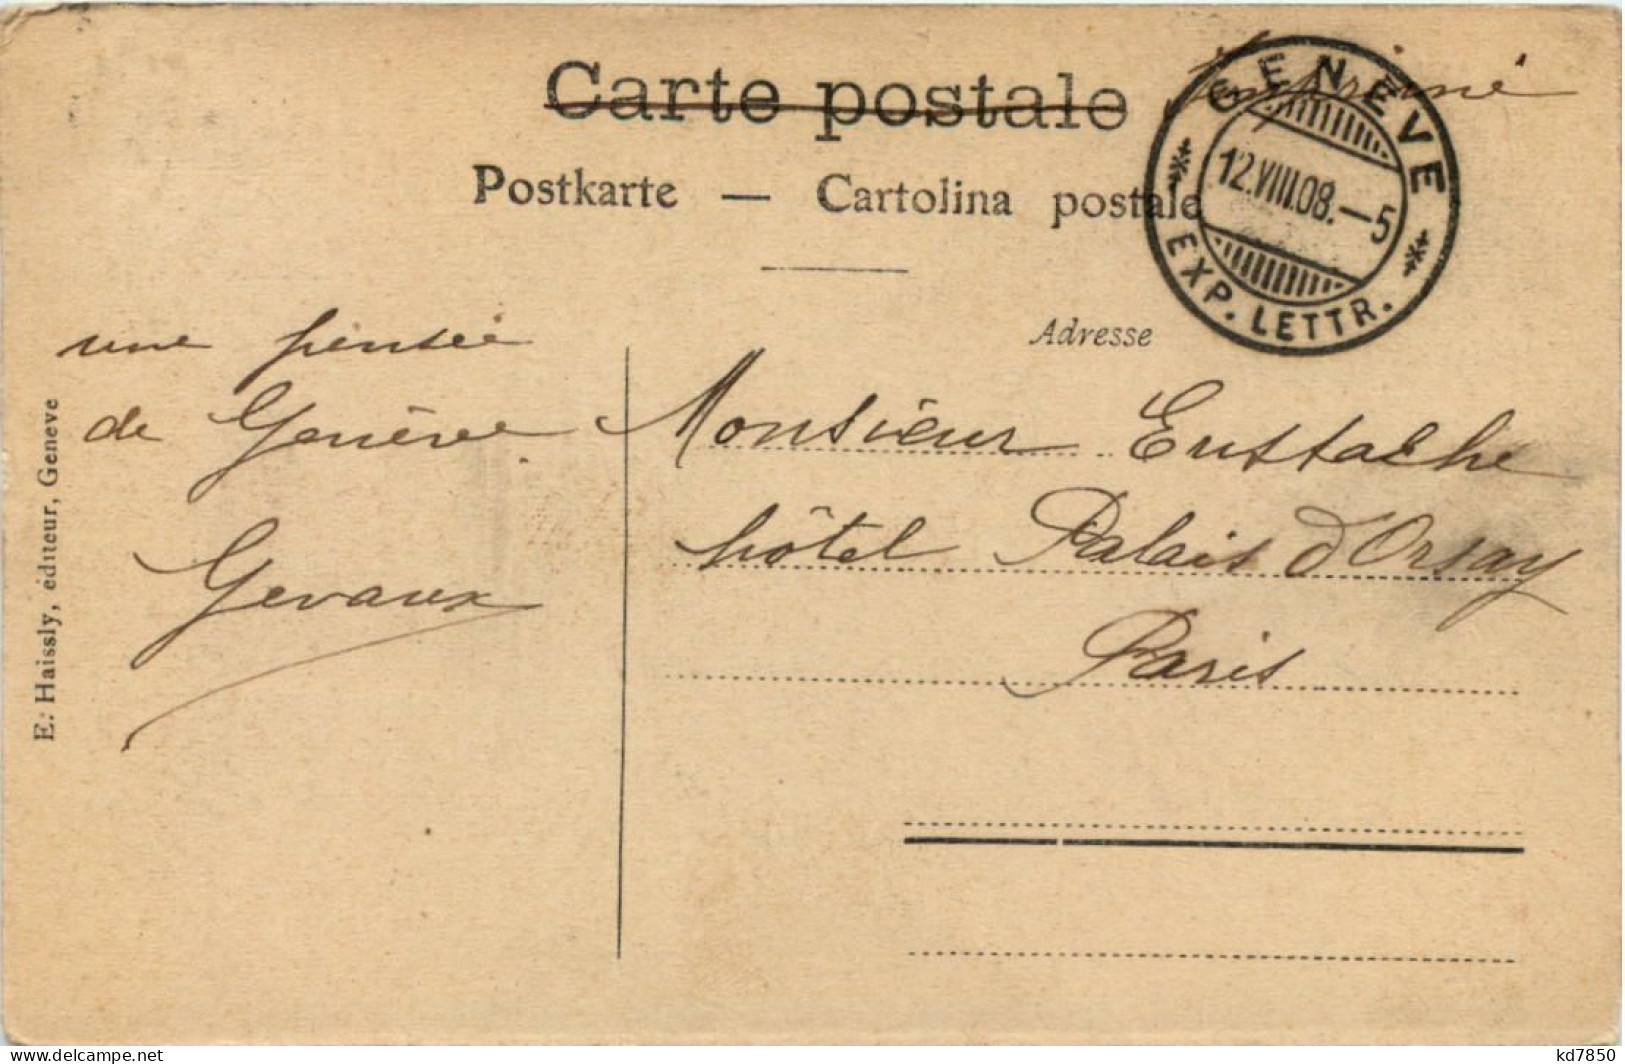 Carte postale
Imprimé
Postkarte — Cartolina postale
GENÈVE
12.VIII.08.—5
EXP. LETTR.
Adresse
une pensée
de Genève.
Gevaux
Monsieur Eustache
hôtel Palais d'Orsay
Paris
E. Haissly, éditeur, Geneve
kd7850